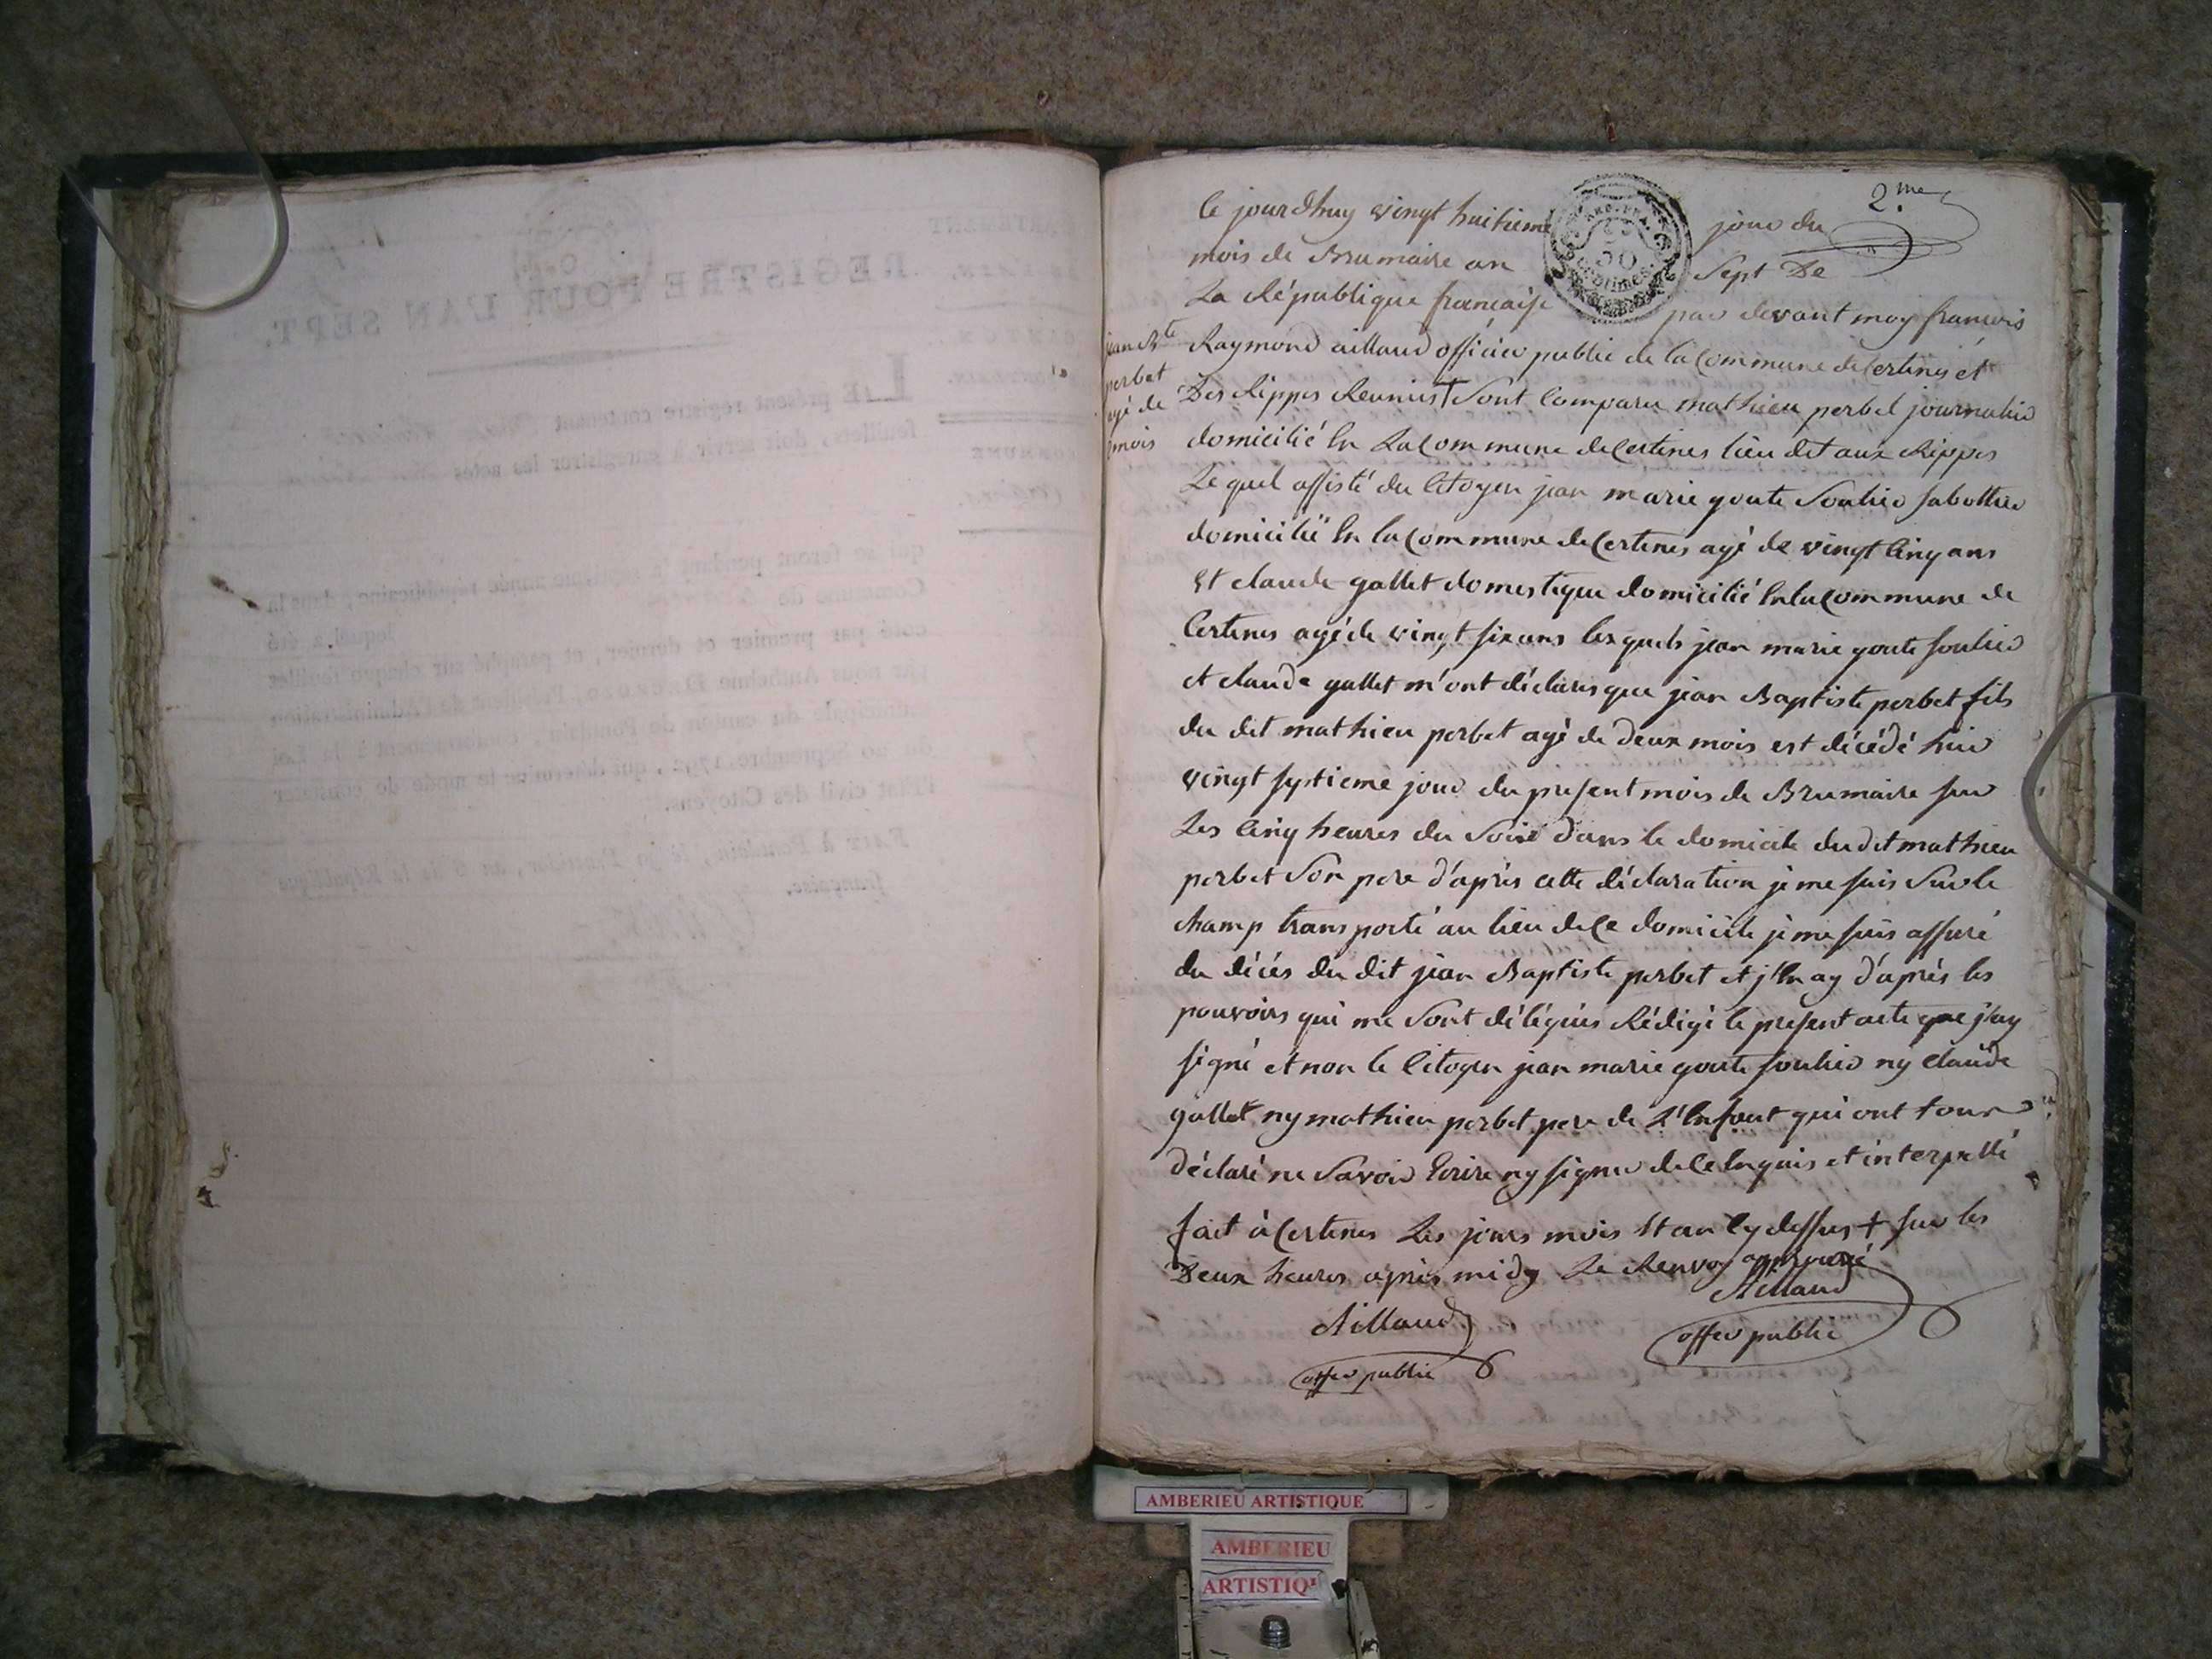 2.me
Ce jourdhuy vingt huitieme jour du
mois de Brumaire an Sept De
La République francaise par devant moy francois
Raymond aillaud officier public de la Commune de Certines et
Des Rippes Reunies † Sont Comparu mathieu perbet journalier
domicilié En La Commune de Certines lieu dit aux Rippes
Le quel assisté du Citoyen jean marie goute Soulier sabottier
domicilié En la Commune de Certines agé de vingt Cinq ans
Et claude gallet domestique domicilié En la Commune de
Certines agé de vingt six ans les quels jean marie goute soulier
et claude gallet m'ont déclarés que jean Baptiste perbet fils
du dit mathieu perbet agé de deux mois est décédé hier
vingt septieme jour du present mois de Brumaire sur
Les Cinq heures du Soir dans le domicile du dit mathieu
perbet Son pere d'après cette déclaration je me suis Sur le
champ transporté au lieu de Ce domicile je me suis assuré
du décés du dit jean Baptiste perbet et j'En ay d'après les
pouvoirs qui me Sont délégués Rédigé le present acte que j'ay
signé et non le Citoyen jean marie goute soulier ny claude
gallet ny mathieu perbet pere de L'Enfant qui ont tous
déclaré ne Savoir Ecrire ny signer de Ce Enquis et interpellé
fait à Certines Les jours mois Et an Cy dessus † sur les
Deux heures après midy Le Renvoy approuvé
Aillaud
offer public
Aillaud
offer public
jean Bte
perbet
agé de
2 mois
REGISTRE POUR L'AN SEPT.
LE présent registre contenant
feuillets, doit servir à enregistrer les actes
qui se feront pendant la septième année républicaine, dans la
Commune de
lequel a été
coté par premier et dernier, et paraphé sur chaque feuillet
AMBERIEU ARTISTIQUE
AMBERIEU
ARTISTIQ